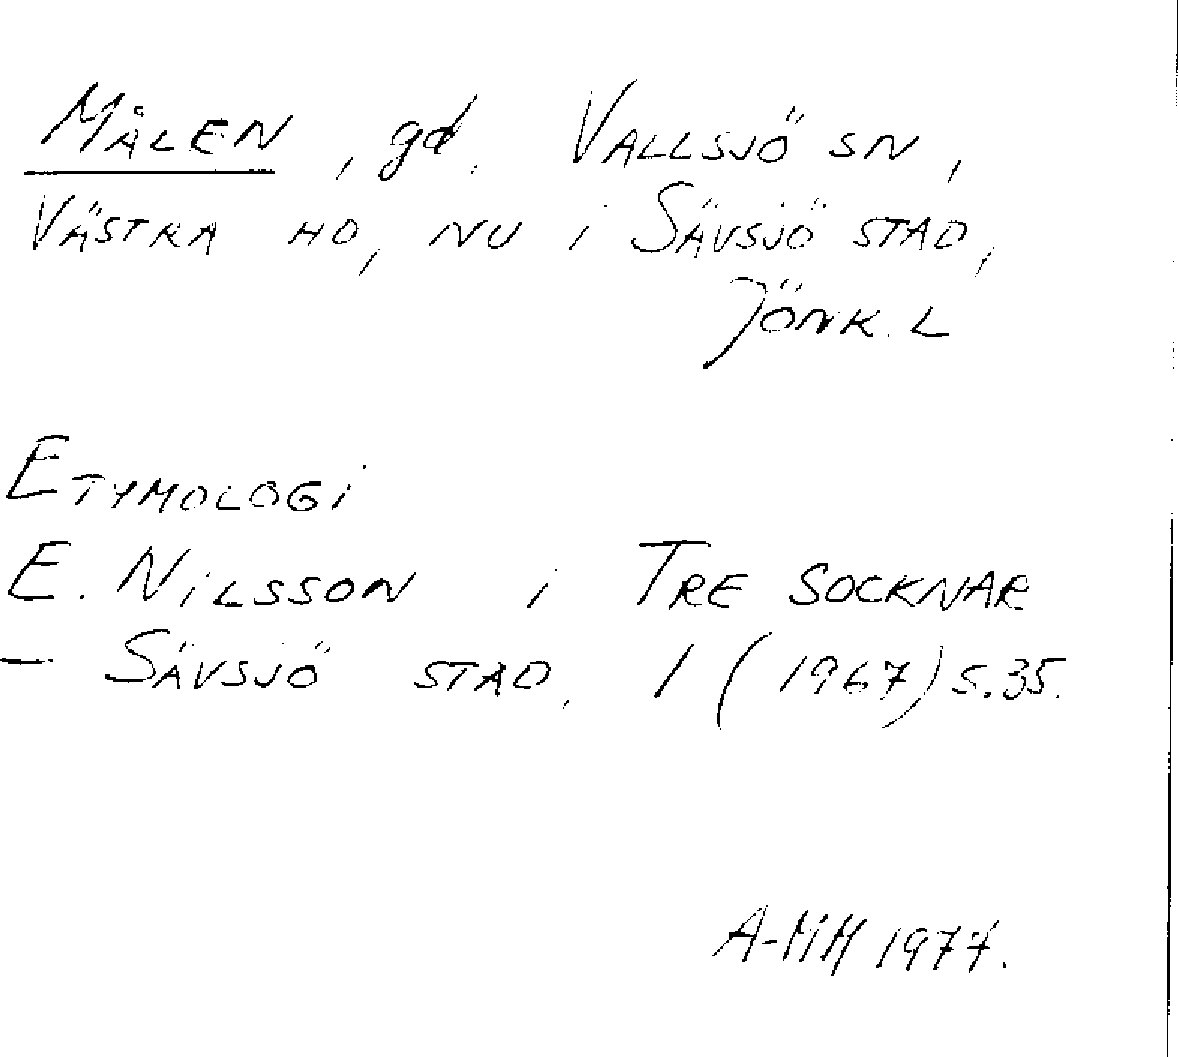 MÅLEN, gd. VALLSJÖ SN,
VÄSTRA HD, NU i SÄVSJÖ STAD,
JÖNK. L
ETYMOLOGi
E. NiLSSON i TRE SOCKNAR
- SÄVSJÖ STAD. 1 (1967) S. 35.
1977.